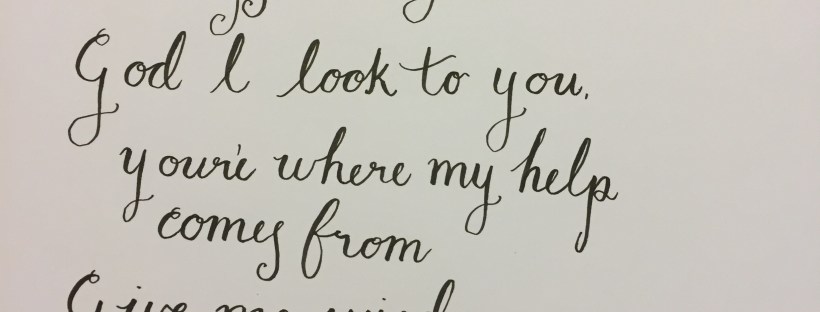 God I look to you,
you're where my help
comes from
Give me